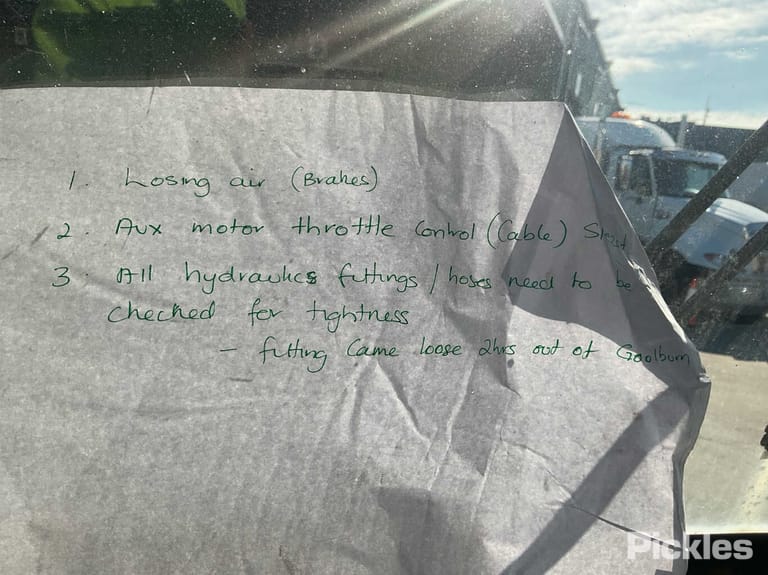 1. Losing air (Brakes)
2. Aux motor throttle control (Cable)
3. All hydraulics fittings / hoses need to be
checked for tightness
– fitting came loose 2hrs out of Goolburn
Pickles